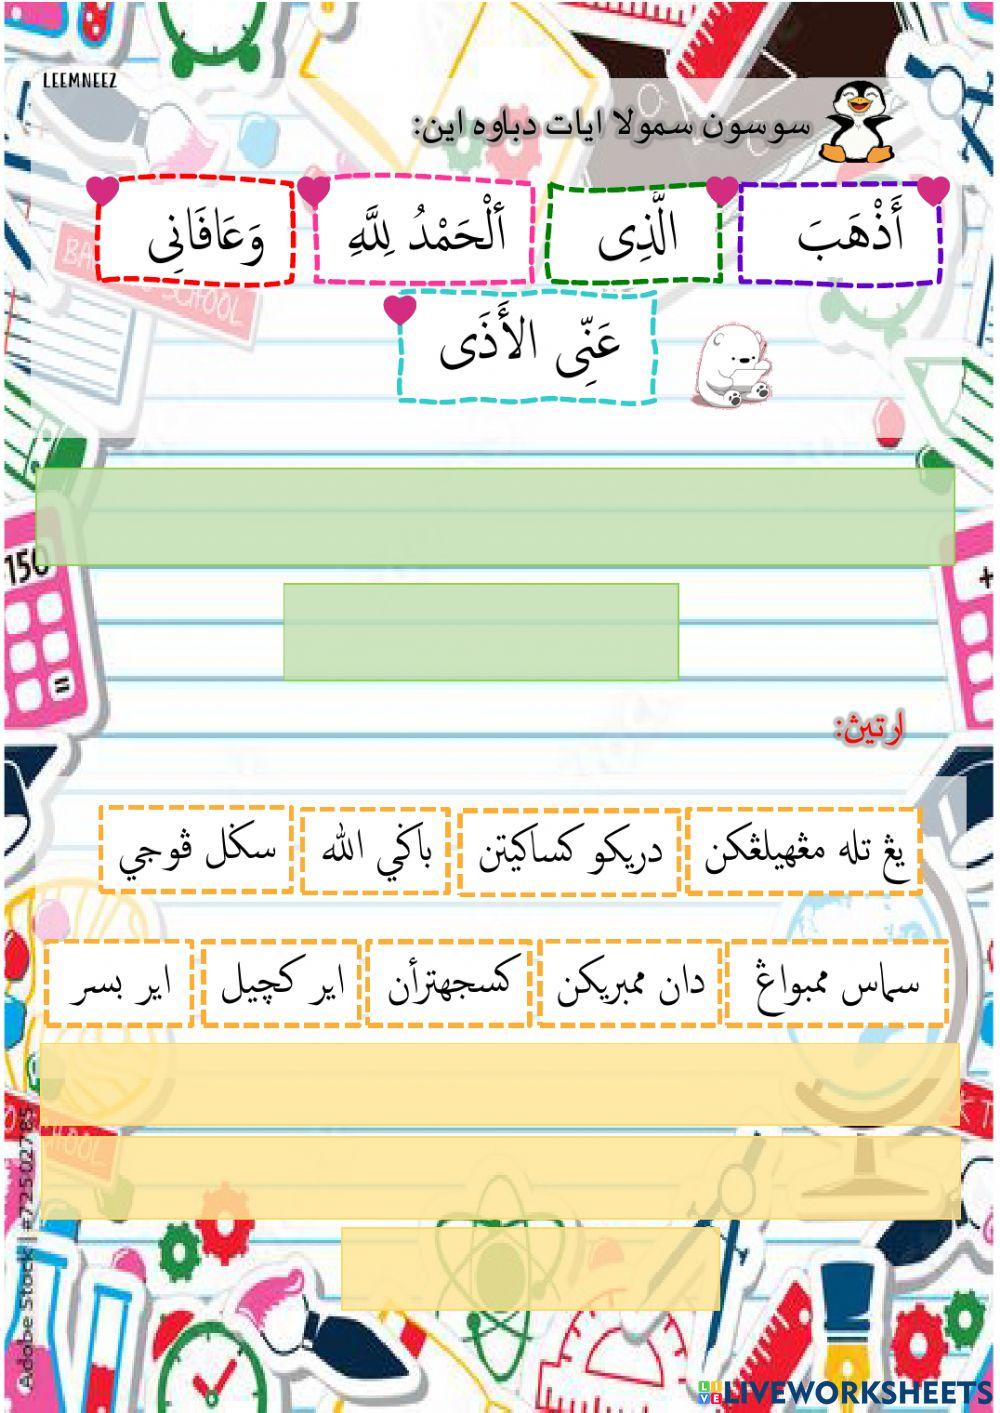 LEEMNEEZ
سوسون سمولا ايات دباوه اين:
أَذْهَبَ الَّذِى ألْحَمْدُ لِلَّهِ وَعَافَانِى
عَنِّى الأَذَى
BACK TO SCHOOL
150
ارتيڽ:
يڠ تله مڠهيلڠكن دريكو كساكيتن باݢي الله سݢل ڤوجي
سماس ممبواڠ دان ممبريكن كسجهترأن اير كچيل اير بسر
Adobe Stock | #72502785
LIVEWORKSHEETS